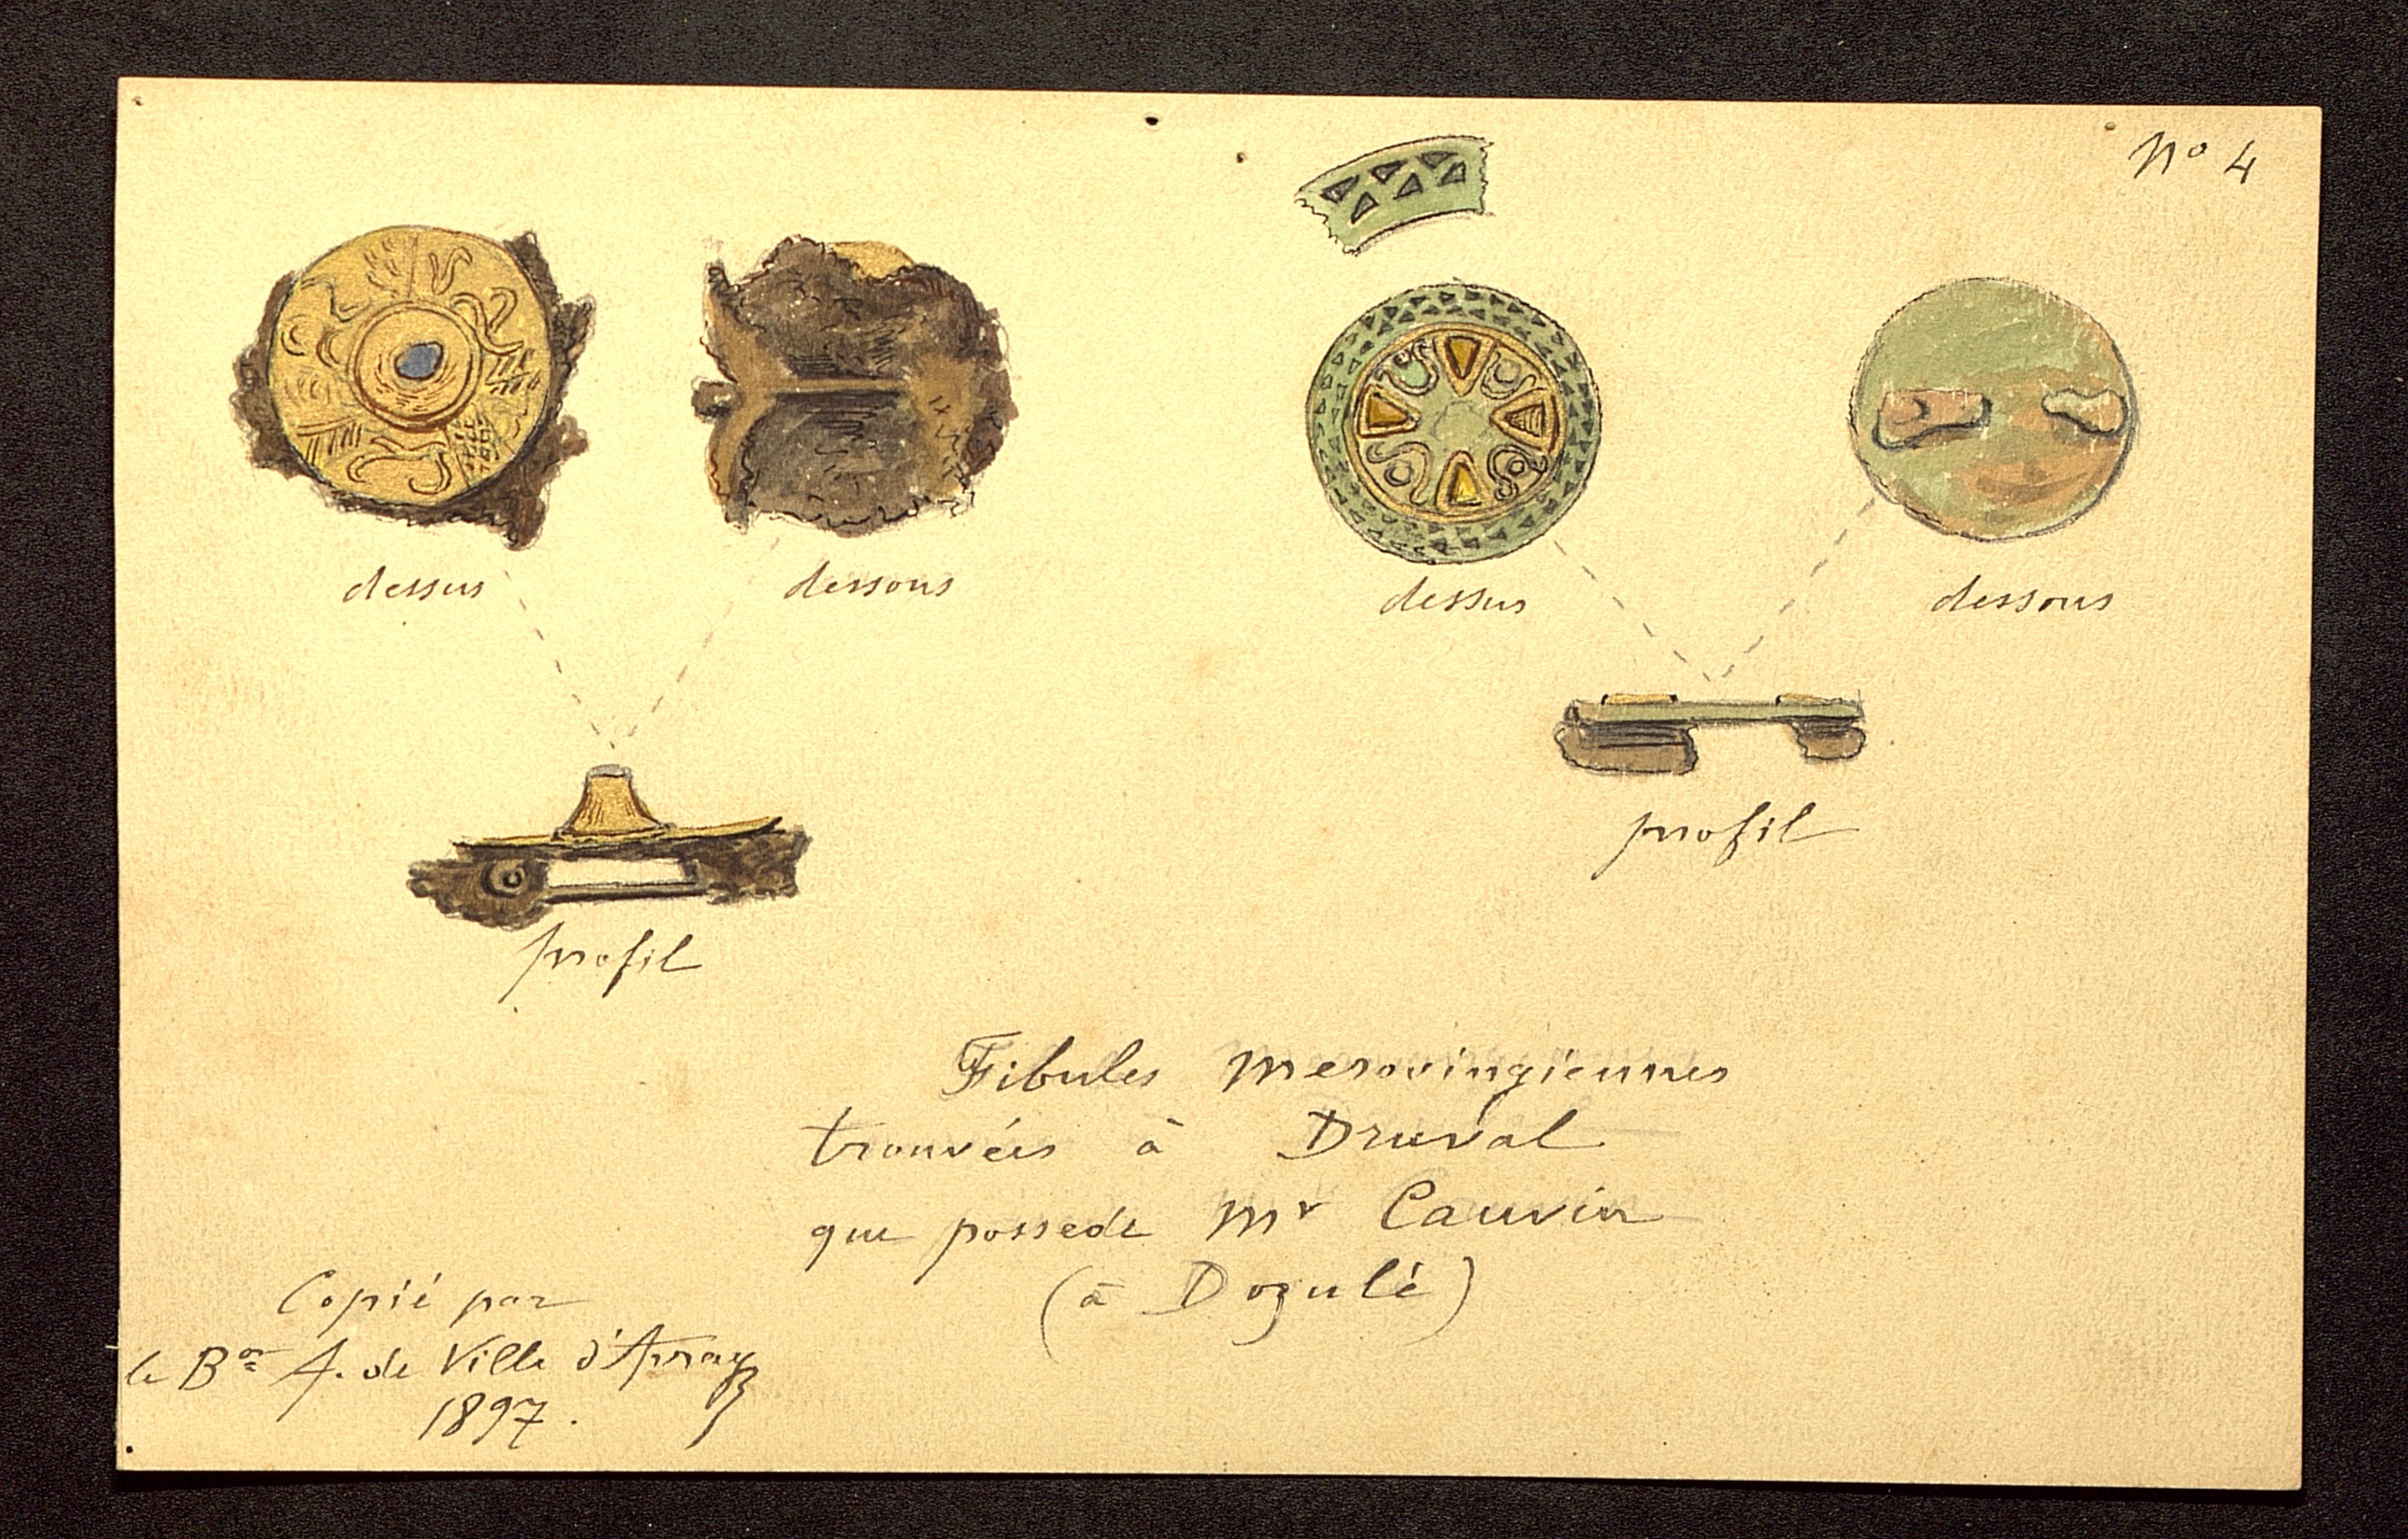 No 4
dessus
dessous
dessus
dessous
profil
profil
Fibules merovingiennes
trouvées à Druval
que possede Mr Cauvin
(à Dozulé)
Copié par
le Bon A. de Ville d'Avray
1897.